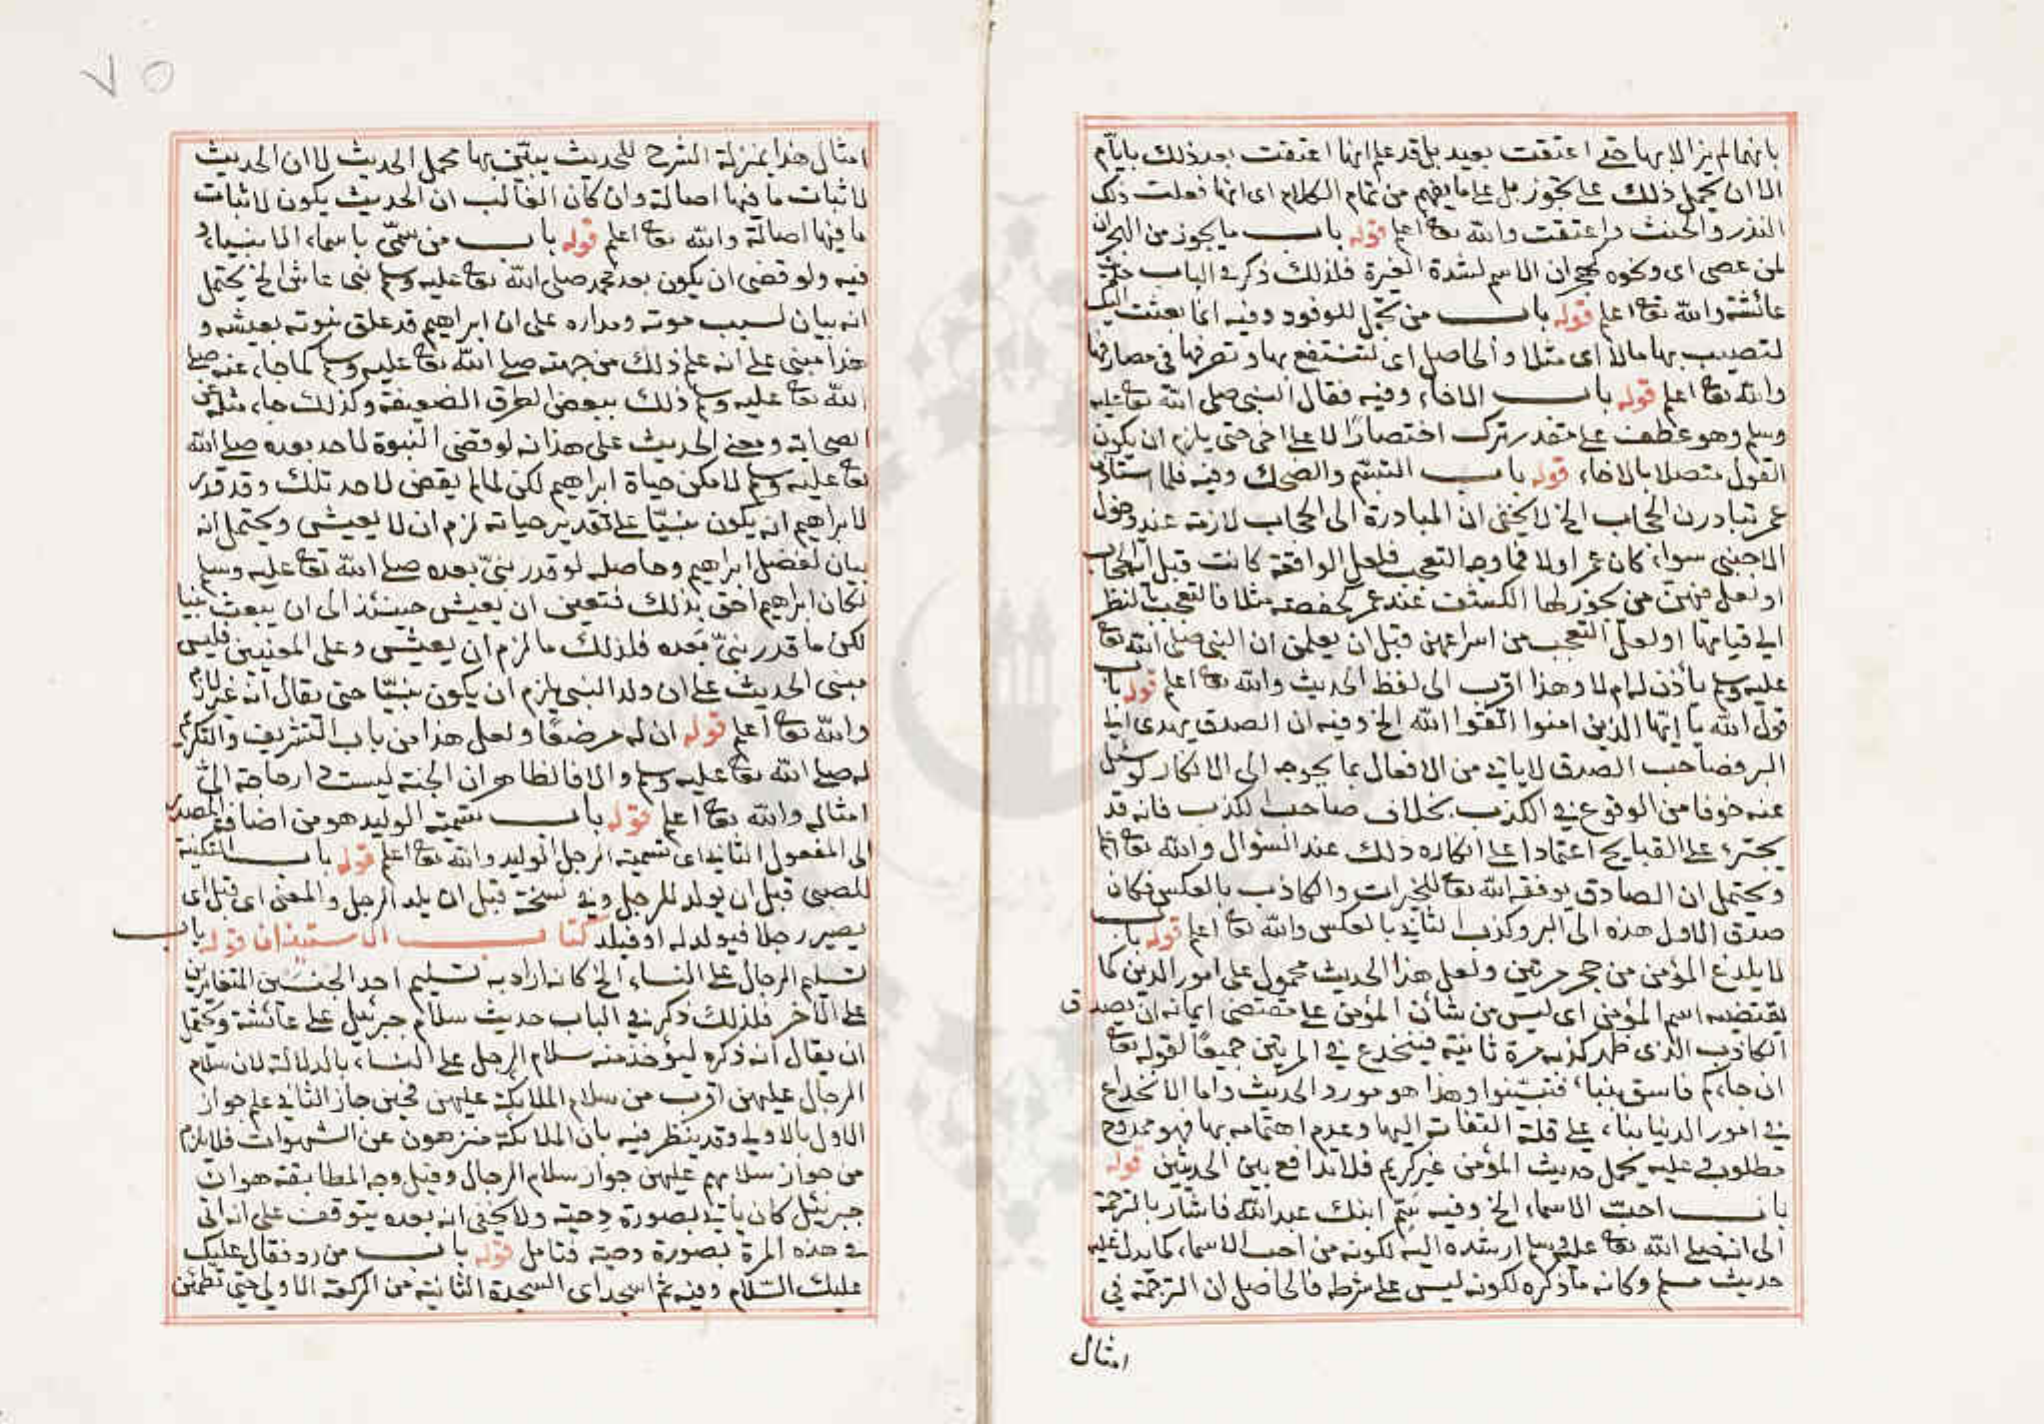 بانها لم يزالا بها حتى اعتقت بعيد بل قد علم انها اعتقت بعد ذلك بايام
الا ان يحمل ذلك على تجوز بل على ما يفهم من تمام الكلام اى انها فعلت ذلك
النذر والحنث واعتقت والله تعا اعلم قوله باب ما يجوز من الهجران
لمن عصى اى ونحوه كهجران الاسم لشدة الغيرة فلذلك ذكر في الباب حديث
عائشة والله تعا اعلم قوله باب من تجمل للوفود وفيه انما بعثت اليك
لتصيب بها مالا اى مثلا والحاصل اى لتنتفع بها وتصرفها في مصارفها
والله تعا اعلم قوله باب الاخاء وفيه فقال النبي صلى الله تعا عليه
وسلم وهو عطف على مقدر ترك اختصارًا لا على اخى حتى يلزم ان يكون
القول متصلا بالاخاء قوله باب التبسم والضحك وفيه فلما استأذن
عمر تبادرن الحجاب الخ لا يخفى ان المبادرة الى الحجاب لازمة عند دخول
الاجنبي سواء كان عمر اولا فما وجه التعجب فلعل الواقعة كانت قبل الحجاب
او لعل فيهن من يجوز لها الكشف عند عمر كحفصة مثلا فالتعجب بالنظر
الى قيامها او لعل التعجب من اسراعهن قبل ان يعلمن ان النبي صلى الله تعا
عليه وسلم يأذن له ام لا وهذا اقرب الى لفظ الحديث والله تعا اعلم قوله باب
قول الله يا ايها الذين امنوا اتقوا الله الخ وفيه ان الصدق يهدى الى
البر فصاحب الصدق لا ياتي من الافعال بما يحوجه الى الانكار لو سئل
عنه خوفا من الوقوع في الكذب بخلاف صاحب الكذب فانه قد
يجترء على القبايح اعتمادا على انكاره ذلك عند السؤال والله تعا اعلم
ويحتمل ان الصادق يوفقه الله تعا للخيرات والكاذب بالعكس فكان
صدق الاول هذه الى البر وكذب الثاني بالعكس والله تعا اعلم قوله باب
لا يلدغ المؤمن من جحر مرتين ولعل هذا الحديث محمول على امور الدين كما
يقتضيه اسم المؤمن اى ليس من شأن المؤمن على مقتضى ايمانه ان يصدق
الكاذب الذى ظهر كذبه مرة ثانية فينخدع في المرتين جميعًا لقوله تعا
ان جاءكم فاسق بنباء فتبينوا وهذا هو مورد الحديث واما الانخداع
في امور الدنيا بناء على قلة التفاته اليها وعدم اهتمامه بها فهو ممدوح
مطلوب وعليه يحمل حديث المؤمن غر كريم فلا تدافع بين الحديثين قوله
باب احب الاسماء الخ وفيه سم ابنك عبد الله فاشار بالترجمة
الى انه صلى الله تعا عليه وسلم ارشده اليه لكونه من احب الاسماء كما يدل عليه
حديث مسلم وكانه ما ذكره لكونه ليس على شرطه فالحاصل ان الترجمة في
امثال
٧٥
امثال هذا بمنزلة الشرح للحديث يبين بها محمل الحديث لا ان الحديث
لاثبات ما فيها اصالة وان كان الغالب ان الحديث يكون لاثبات
ما فيها اصالة والله تعا اعلم قوله باب من سمى باسماء الانبياء و
فيه ولو قضى ان يكون بعد محمد صلى الله تعا عليه وسلم نبى عاش الخ يحتمل
انه بيان لسبب موته ومداره على ان ابراهيم قد علق نبوته بعيشه و
هذا مبنى على انه علم ذلك من جهته صلى الله تعا عليه وسلم كما جاء عنه صلى
الله تعا عليه وسلم ذلك ببعض الطرق الضعيفة وكذلك جاء مثله عن
الصحابة ومعنى الحديث على هذا انه لو قضى النبوة لاحد بعده صلى الله
تعا عليه وسلم لامكن حياة ابراهيم لكن لما لم يقض لاحد تلك وقد قدر
لابراهيم انه يكون نبيًّا على تقدير حياته لزم ان لا يعيش ويحتمل انه
بيان لفضل ابراهيم وحاصله لو قدر نبيّ بعده صلى الله تعا عليه وسلم
لكان ابراهيم احق بذلك فتعين ان يعيش حينئذ الى ان يبعث نبيا
لكن ما قدر نبيّ بعده فلذلك ما لزم ان يعيش وعلى المعنيين فليس
مبنى الحديث على ان ولد النبي يلزم ان يكون نبيًّا حتى يقال انه غير لازم
والله تعا اعلم قوله ان له مرضعًا ولعل هذا من باب التشريف والتكريم
له صلى الله تعا عليه وسلم والا فالظاهر ان الجنة ليست دار حاجة الى
امثاله والله تعا اعلم قوله باب تسمية الوليد هو من اضافة المصدر
الى المفعول الثاني اى تسمية الرجل الوليد والله تعا اعلم قوله باب الكنية
للصبى قبل ان يولد للرجل وفي نسخة قبل ان يلد الرجل والمعنى اى قبل اى
يصير رجلا فيولد له او فيلد كتاب الاستيذان قوله باب
تسليم الرجال على النساء الخ كانه اراد به تسليم احد الجنسين المتغايرين
على الآخر فلذلك ذكر في الباب حديث سلام جبرئيل على عائشة ويحتمل
ان يقال انه ذكره ليؤخذ منه سلام الرجل على النساء بالدلالة لان سلام
الرجال عليهن اقرب من سلام الملائكة عليهن فحين جاز الثاني علم جواز
الاول بالاولى وقد ينظر فيه بان الملائكة منزهون عن الشهوات فلا يلزم
من جواز سلامهم عليهن جواز سلام الرجال وقيل وجه المطابقة هو ان
جبرئيل كان يأتي بصورة دحية ولا يخفى انه بعده يتوقف على انه اتى
في هذه المرة بصورة دحية فتامل قوله باب من رد فقال عليك
عليك السّلام وفيه ثم اسجد اى السجدة الثانية من الركعة الاولى حتى تطمئن